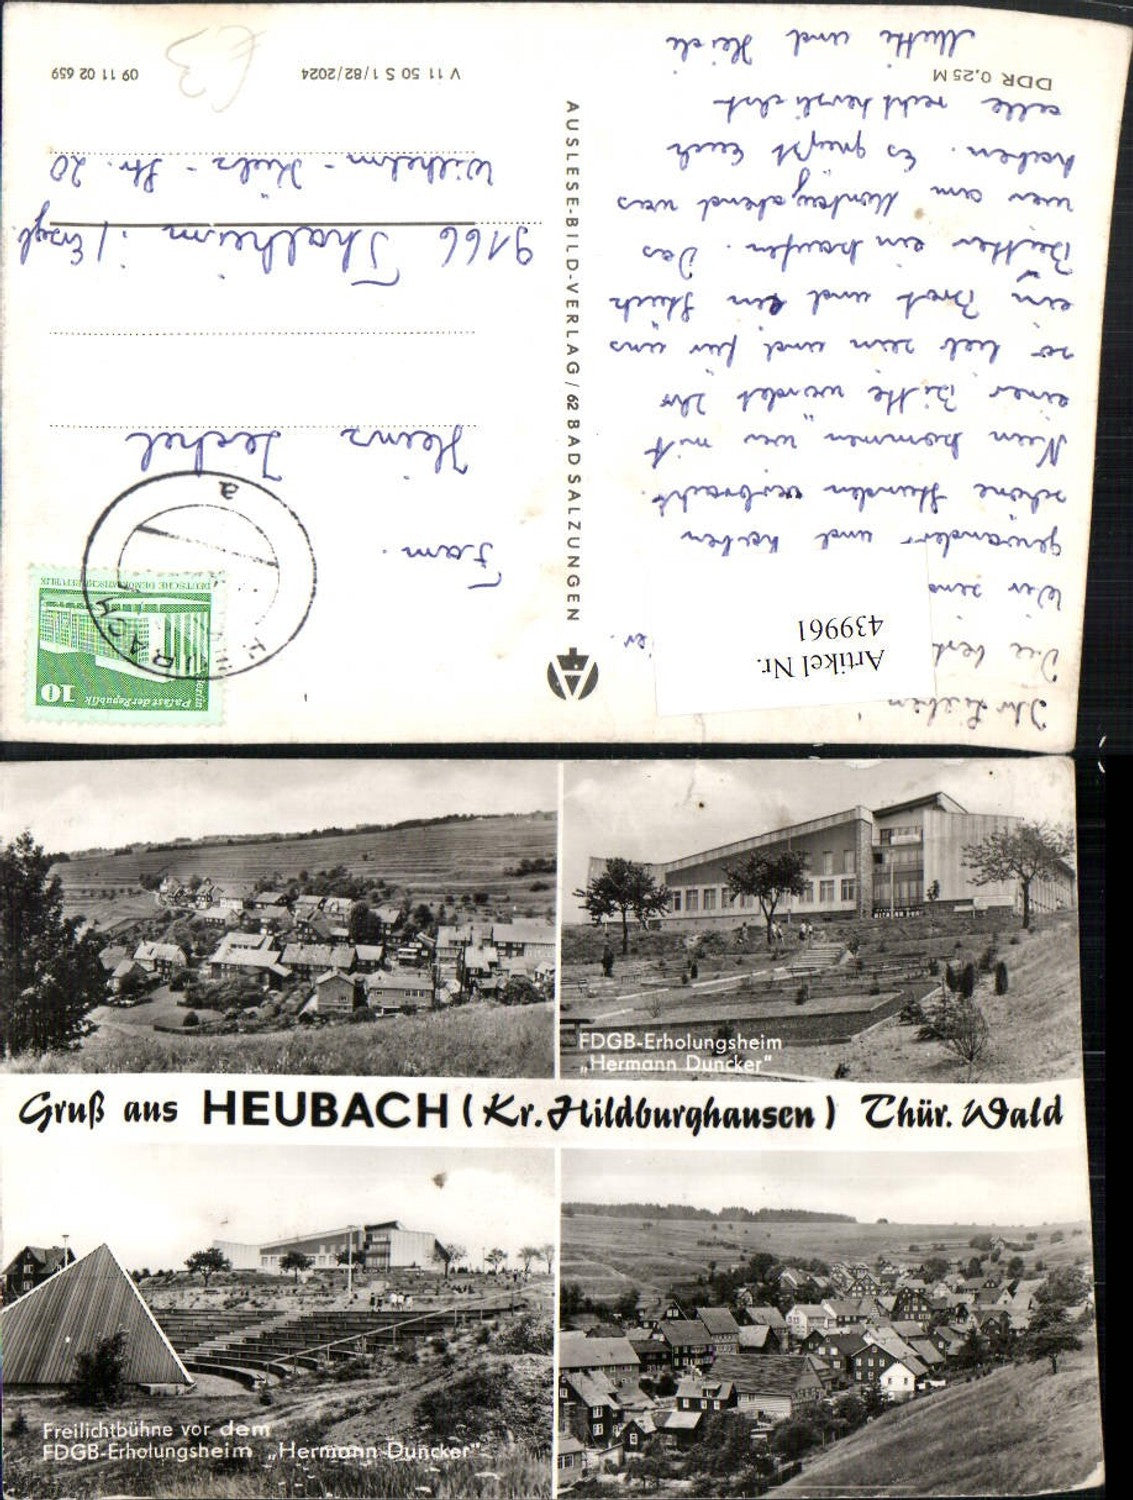 Ihr Lieben
Die best
er.
Wir sind
gewandert und haben
schöne Stunden verbracht.
Nun kommen wir mit
einer Bitte würdet Ihr
so lieb sein und für uns
ein Brot und ein Stück
Butter ein kaufen. Das
wir am Montagabend was
haben. Es grüßt Euch
alle recht herzlichst
Mutti und Heidi
DDR 0,25 M
Artikel Nr.
439961
AUSLESE-BILD-VERLAG / 62 BAD SALZUNGEN
Palast der Republik
Berlin
10
DEUTSCHE DEMOKRATISCHE REPUBLIK
HEUBACH
a
Fam.
Heinz
9166 Thalheim / Erzgb.
Wilhelm-Külz-Str. 20
V 11 50 S 1/82/2024
09 11 02 659
€3
FDGB-Erholungsheim
„Hermann Duncker"
Gruß aus HEUBACH (Kr. Hildburghausen) Thür. Wald
Freilichtbühne vor dem
FDGB-Erholungsheim „Hermann Duncker"